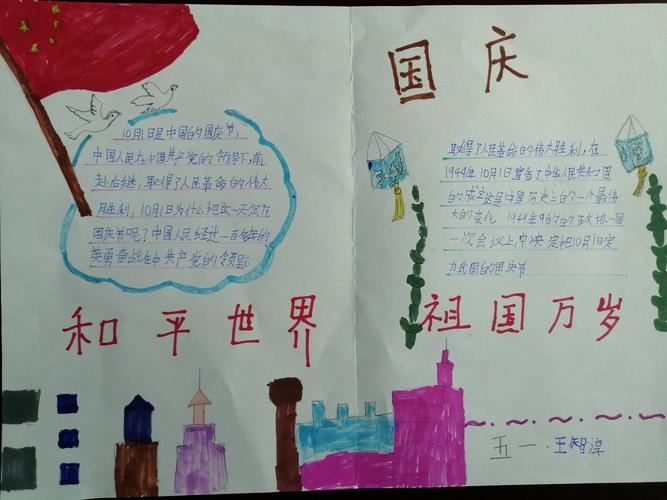 国庆
10月1日是中国的国庆节,
中国人民在中国共产党的领导下,前
赴后继,取得了人民革命的伟大
胜利,10月1日为什么把这一天定为
国庆节呢?中国人民经过一百多年的
英勇奋战在中共产党的领导
取得了人民革命的伟大胜利,在
1949年10月1日宣告了中华人民共和国
的成立这是中国历史上的一个最伟
大的变化 1949年9的的政协一国
一次会议上,中决定把10月1日定
为我国的国庆节
和平世界
祖国万岁
五一.王智淳